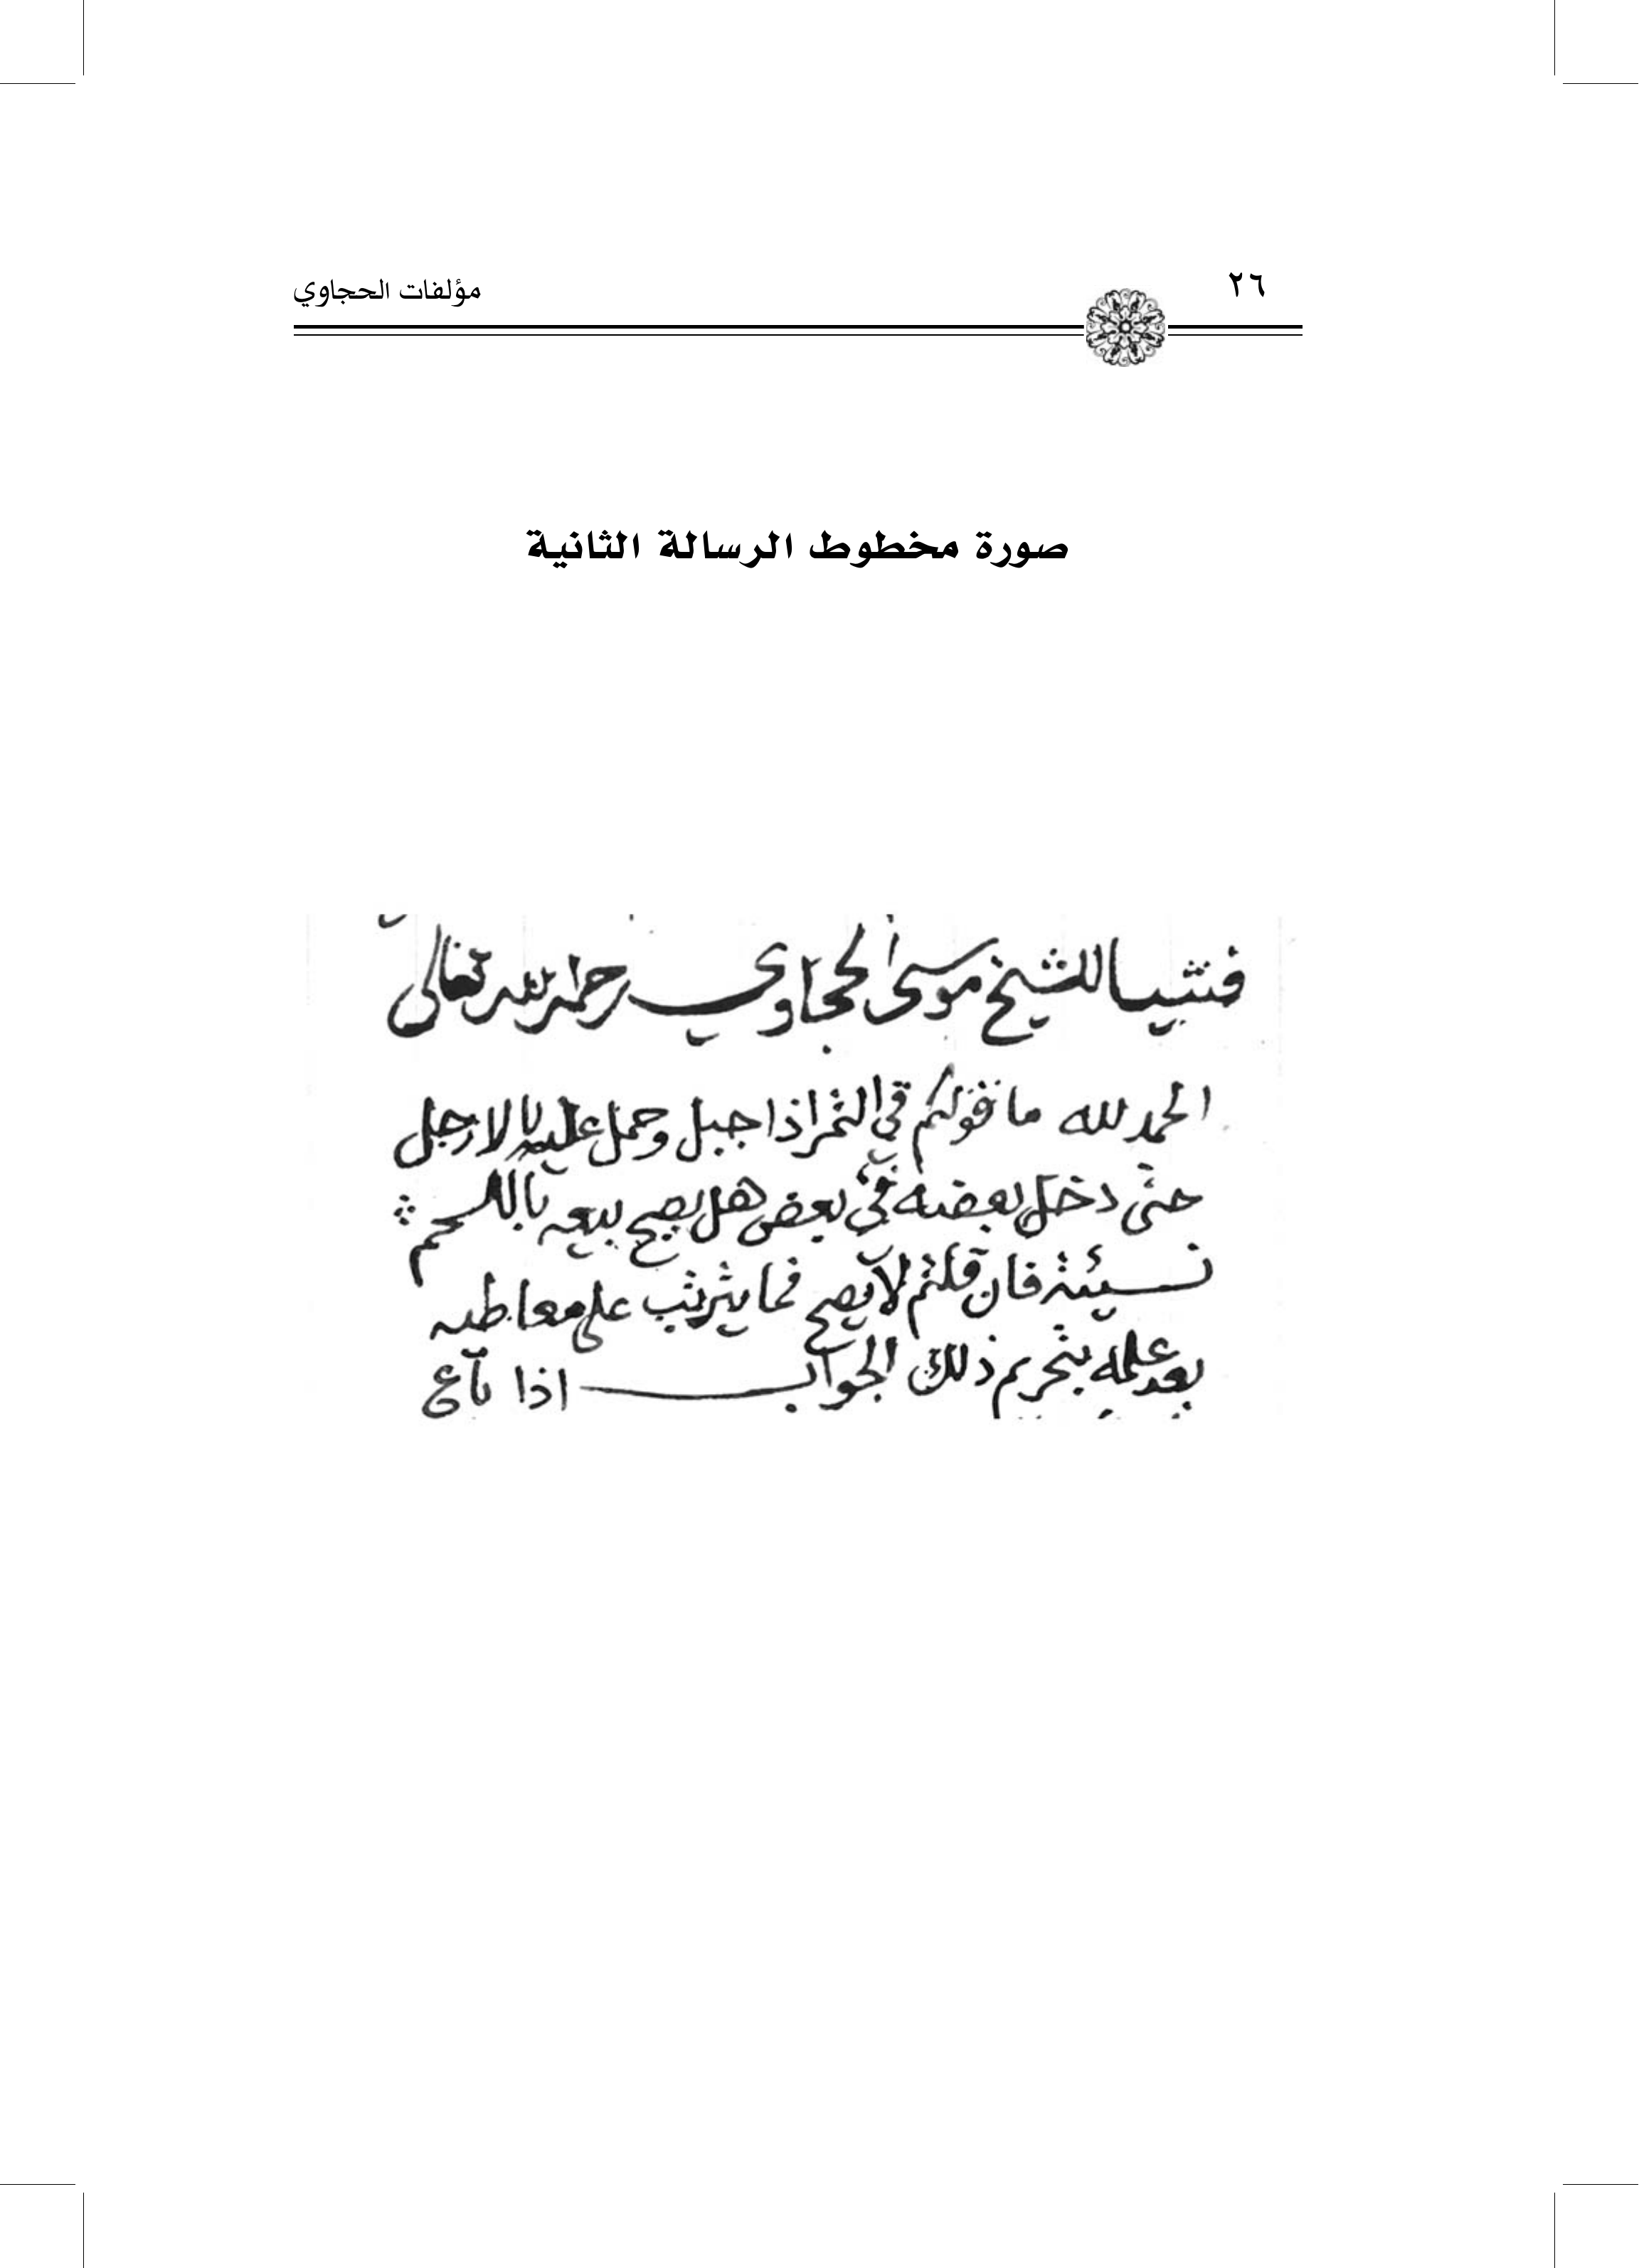 ٢٦
مؤلفات الحجاوي
صورة مخطوط الرسالة الثانية
فتيا للشيخ موسى الحجاوي رحمه الله تعالى
الحمد لله ما قولكم في التمر اذا جبل وحمل عليه الارجل
حتى دخل بعضه في بعض هل يصح بيعه
نسيئة فان قلتم لا يصح فما يترتب على معاطيه
بعد علمه بتحريم ذلك الجواب اذا باع